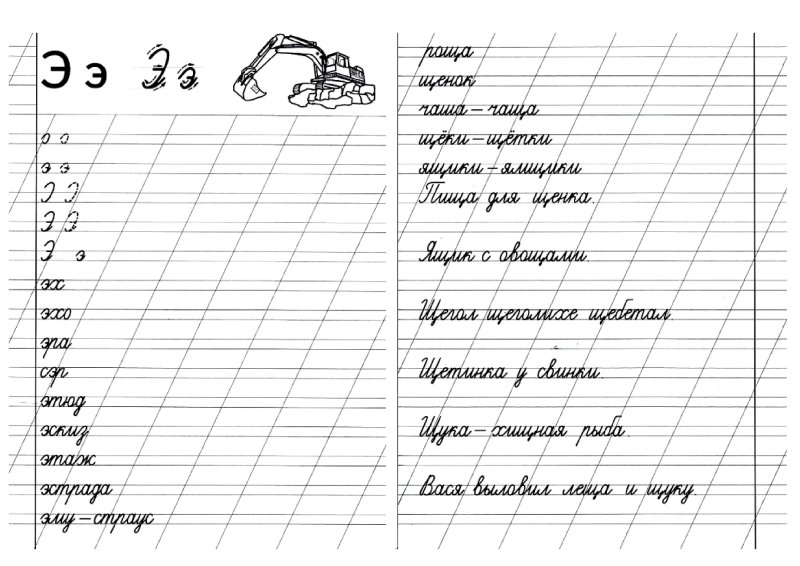 Э э Э э
э э
э э
Э Э
Э Э
Э э
эх
эхо
эра
сэр
этюд
эскиз
этаж
эстрада
эму – страус
роща
щенок
чаша – чаща
щёки – щётки
ящики – ямщики
Пища для щенка.
Ящик с овощами.
Щегол щеголихе щебетал.
Щетинка у свинки.
Щука – хищная рыба.
Вася выловил леща и щуку.